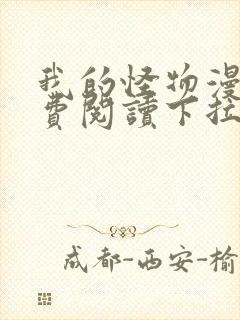 我的怪物漫
費閱讀下拉
成都-西安-榆